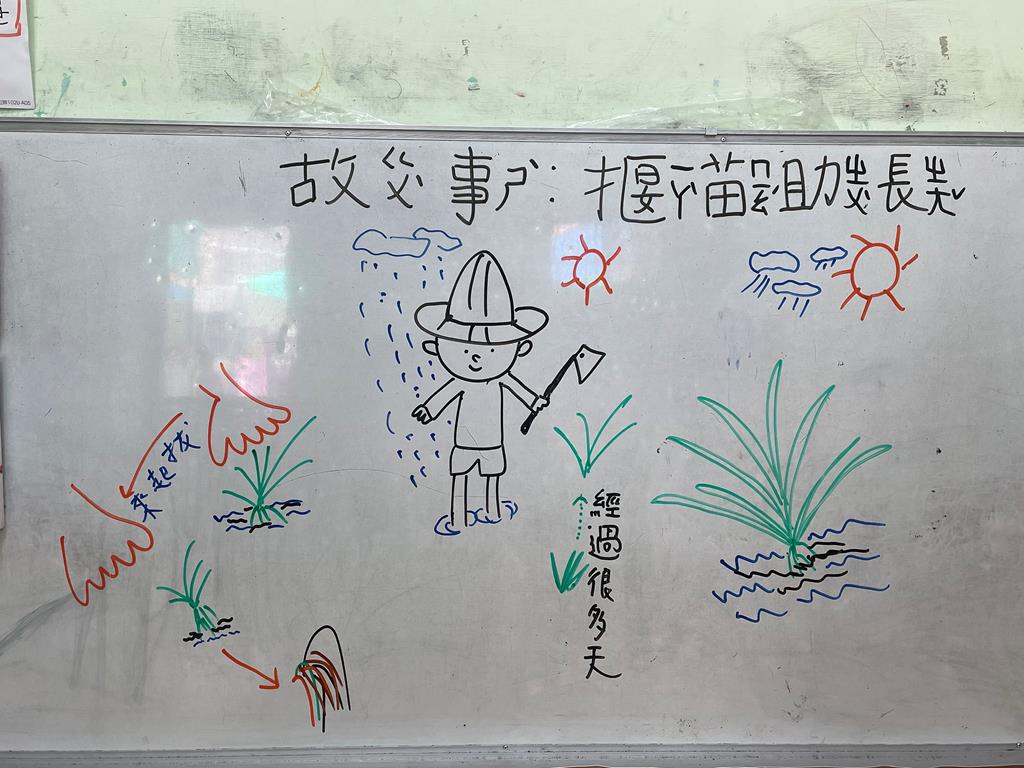 故ㄍㄨˋ事ㄕˋ:揠ㄧㄚˋ苗ㄇㄧㄠˊ助ㄓㄨˋ長ㄓㄤˇ
拔起來
經過很多天